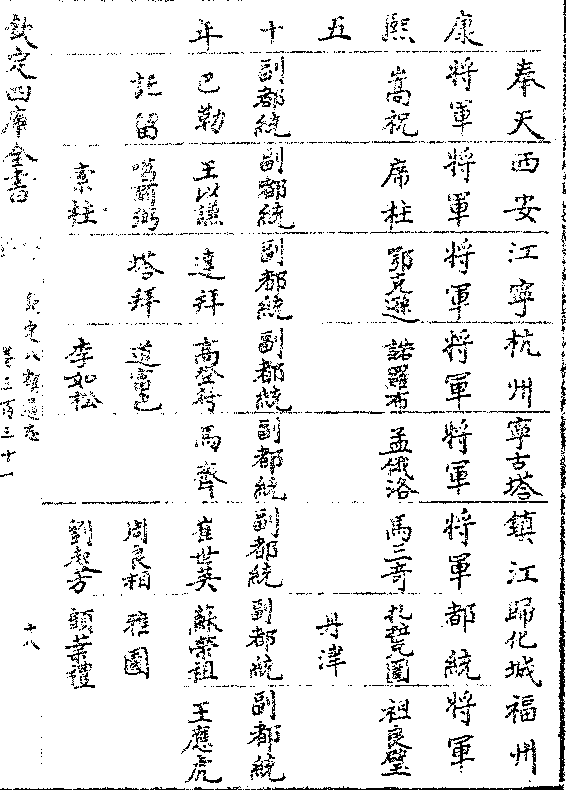 奉天 西安 江寧 杭州 寧古塔 鎮江 歸化城 福州
康 將軍 將軍 將軍 將軍 將軍 將軍 都統 將軍
熙 嵩祝 席柱 鄂克遜 諾羅布 孟俄洛 馬三奇 祖良璧
五 丹津
十 副都統 副都統 副都統 副都統 副都統 副都統 副都統 副都統
年 巴勒 王以謙 達拜 高登 馬齊 崔世英 蘇榮祖 王應虎
託留 噶爾弼 塔拜 道富色 周良相 雅圖
素柱 李如松 劉起芳 額葉禮
欽定四庫全書
欽定八旗通志
卷三百三十一
十八